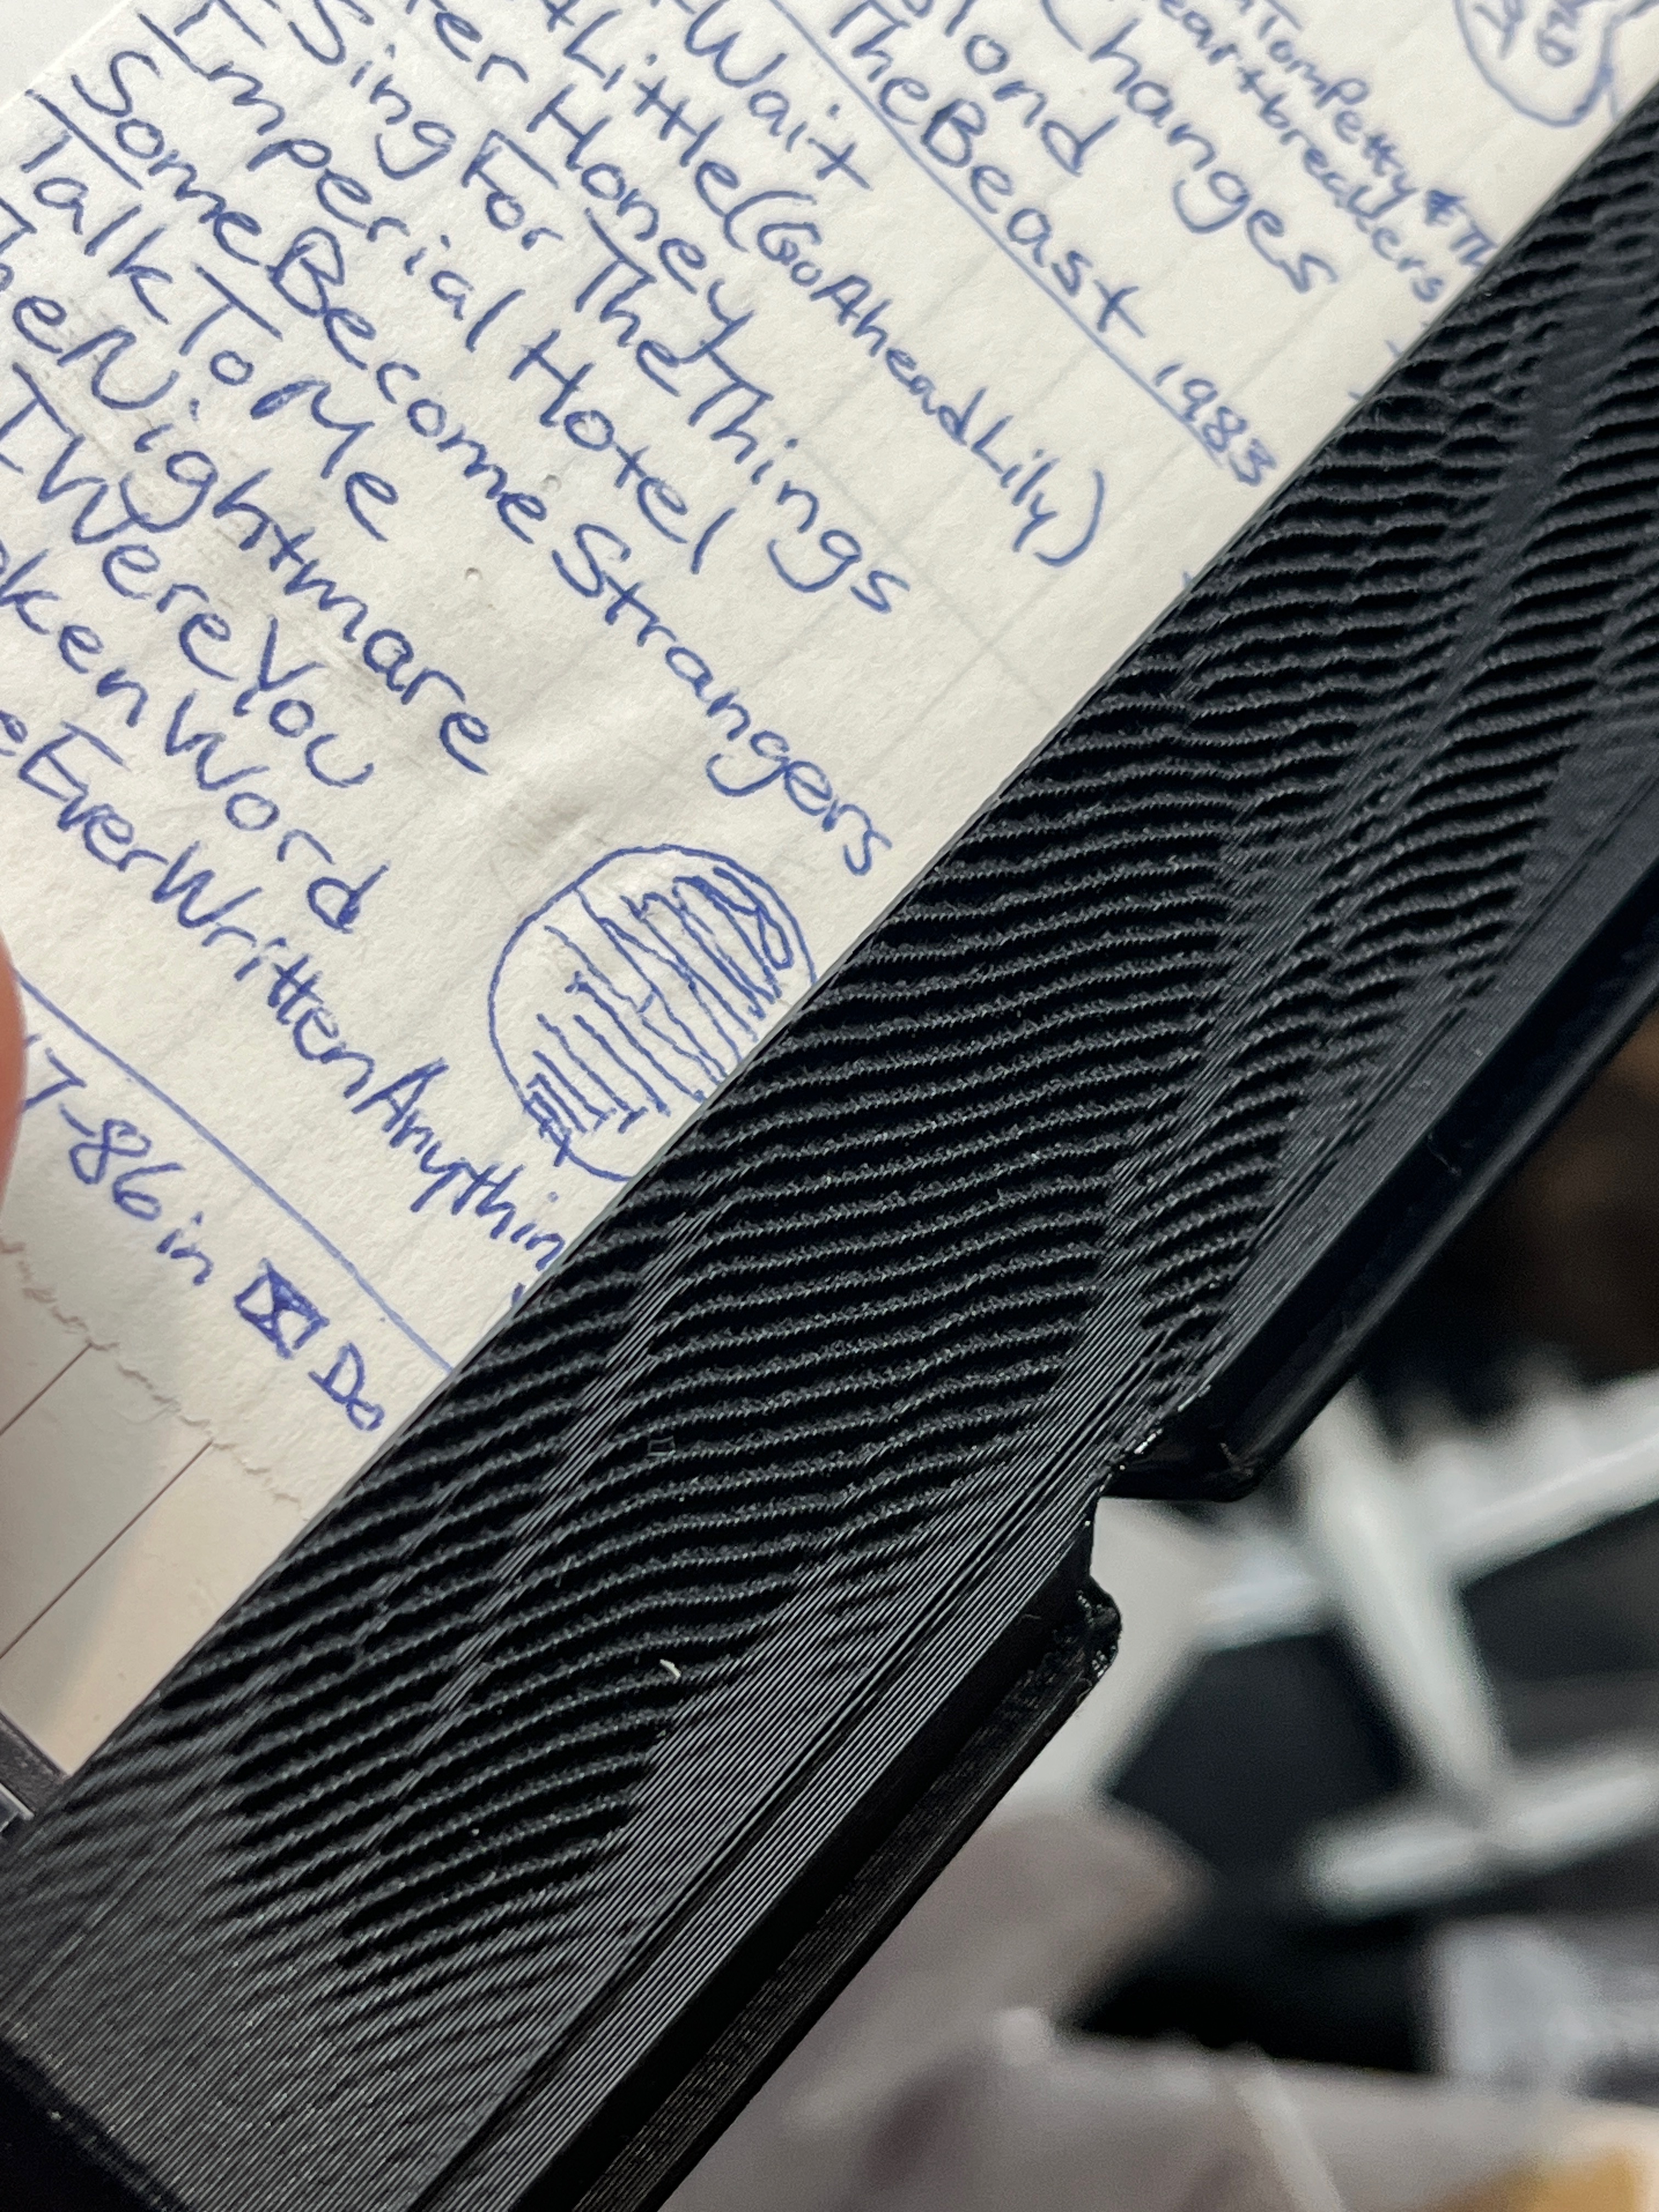 TomPetty & Th
eartbreakers
Changes
lond
TheBeast 1983
Wait
Little (GoAheadLily)
er Honey
Sing For The Things
Imperial Hotel
Some Become Strangers
Talk To Me
heNightmare
I Were You
ken Word
eEverWrittenAnythin
7-86 in Do